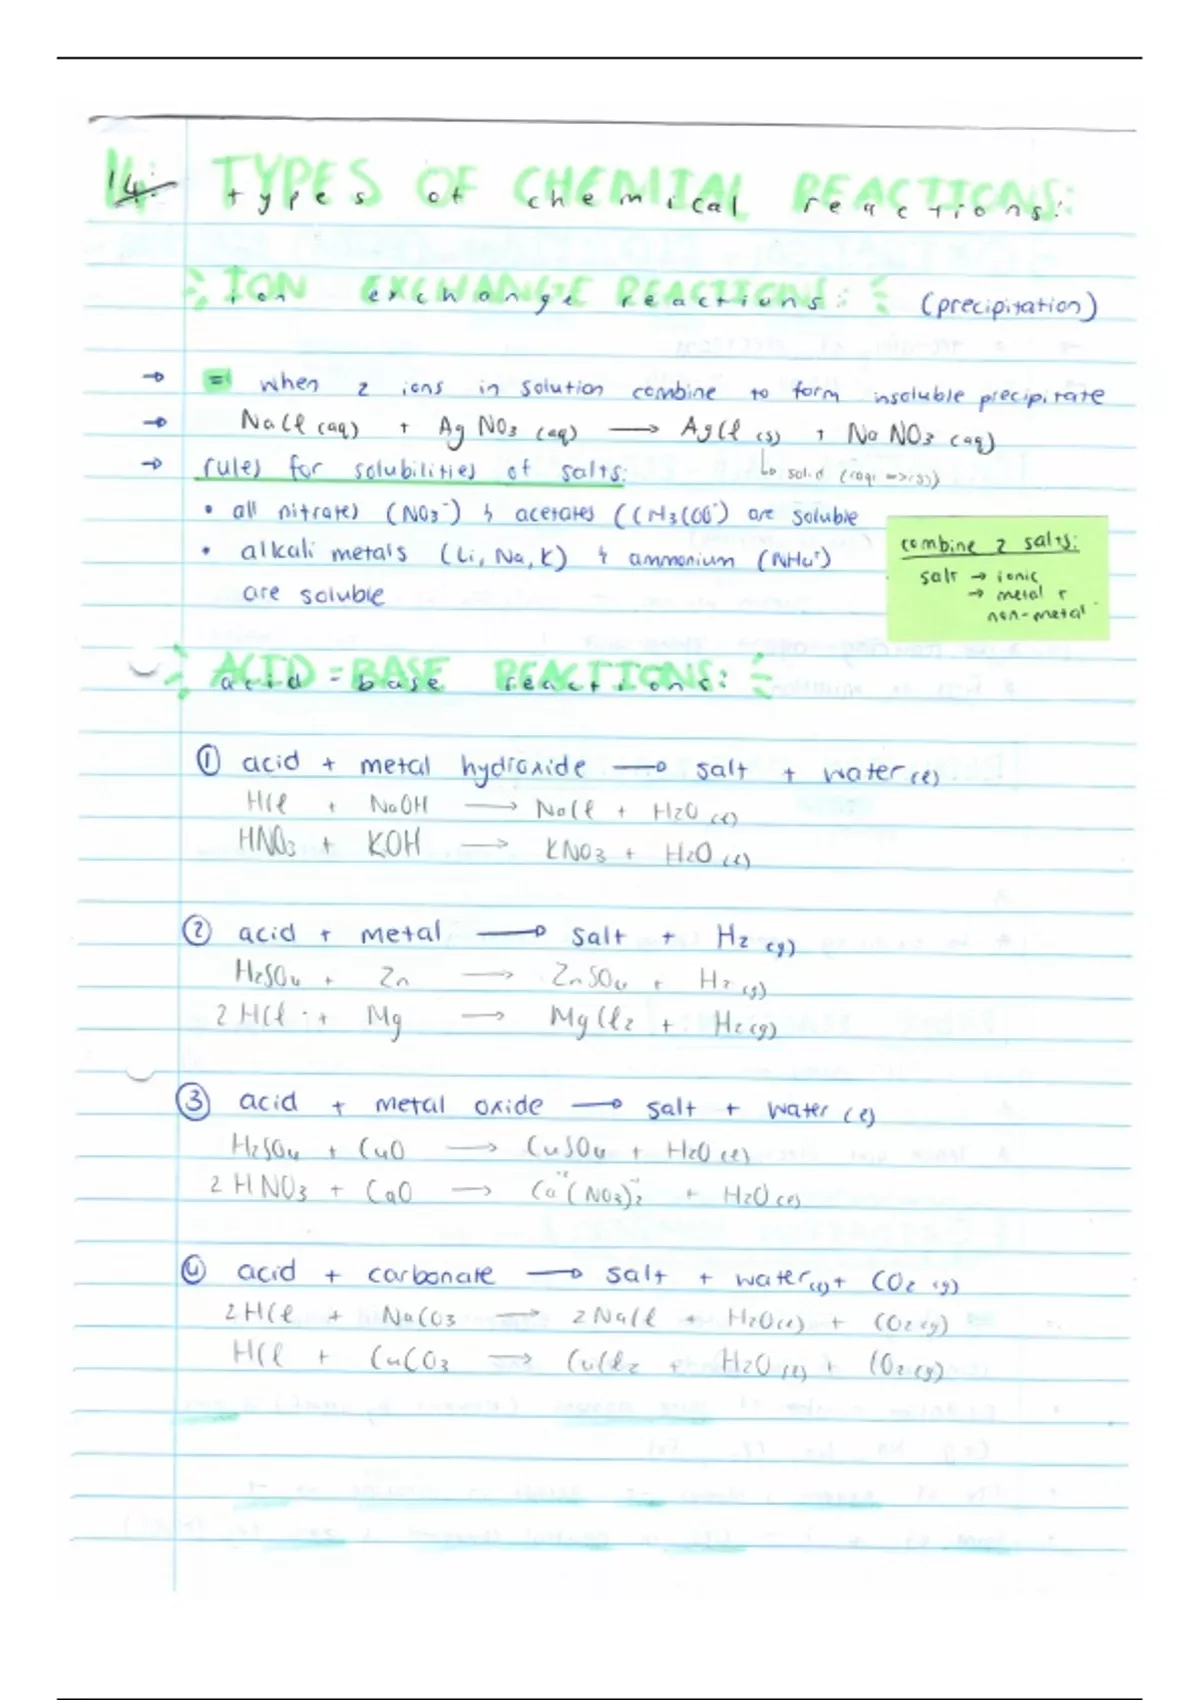 14. TYPES OF CHEMIAL REACTIONS:
types of chemical reactions:
ION EXCHANGE REACTIONS:
ion exchange reactions: (precipitation)
→ = when 2 ions in solution combine to form insoluble precipitate
→ NaCl (aq) + AgNO3 (aq) → AgCl (s) + NaNO3 (aq)
→ rules for solubilities of salts: ↳ solid
• all nitrates (NO3⁻) & acetates (CH3COO⁻) are soluble
• alkali metals (Li, Na, K) & ammonium (NH4⁺)
are soluble
combine 2 salts:
salt → ionic
→ metal +
non-metal
ACID-BASE REACTIONS:
acid-base reactions:
① acid + metal hydroxide → salt + water (l)
HCl + NaOH → NaCl + H2O (l)
HNO3 + KOH → KNO3 + H2O (l)
② acid + metal → salt + H2 (g)
H2SO4 + Zn → ZnSO4 + H2 (g)
2HCl + Mg → MgCl2 + H2 (g)
③ acid + metal oxide → salt + water (l)
H2SO4 + CuO → CuSO4 + H2O (l)
2HNO3 + CaO → Ca⁺²(NO3)⁻¹2 + H2O (l)
④ acid + carbonate → salt + water (l) + CO2 (g)
2HCl + NaCO3 → 2NaCl + H2O (l) + CO2 (g)
HCl + CuCO3 → CuCl2 + H2O (l) + CO2 (g)